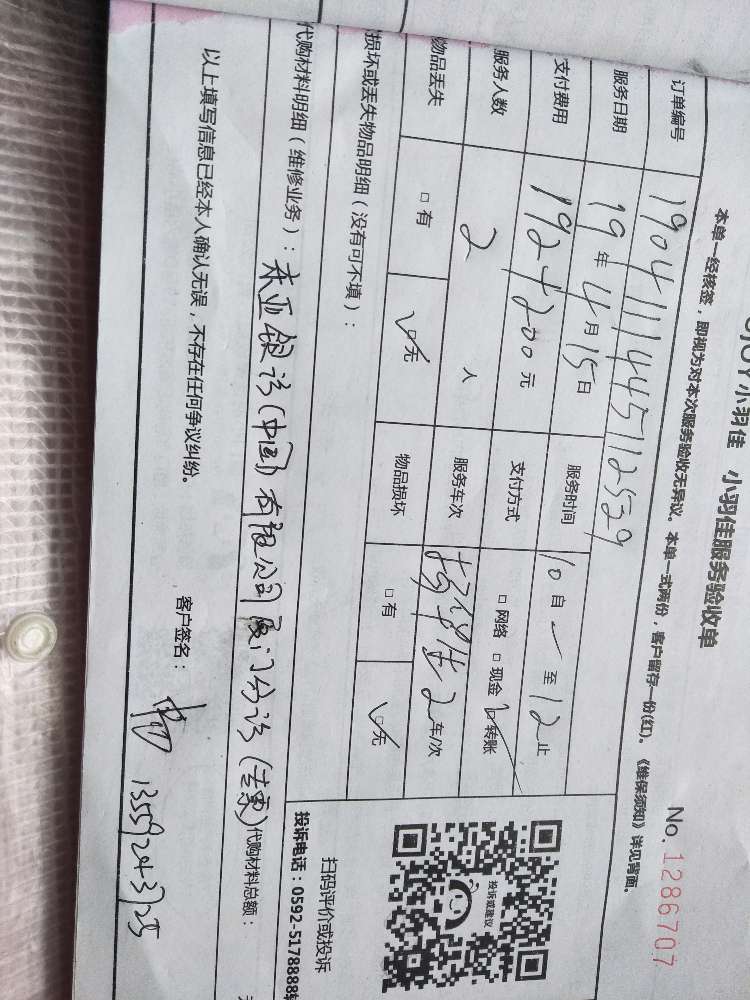 OJOY小羽佳 小羽佳服务验收单
No. 1286707
本单一经核签，即视为对本次服务验收无异议。本单一式两份，客户留存一份(红)。《维保须知》详见背面。
订单编号 1904111445112539
服务日期 19年4月15日 服务时间 10自 至12止
支付费用 192+200元 支付方式 □网络 □现金 ☑转账
服务人数 2人 服务车次 2车/次
物品丢失 □有 ☑无 物品损坏 □有 ☑无
损坏或丢失物品明细（没有可不填）：
代购材料明细（维修业务）： (中国)有限公司厦门分 代购材料总额：
以上填写信息已经本人确认无误，不存在任何争议纠纷。
客户签名： 13559243725
投诉或建议
扫码评价或投诉
投诉电话：0592-5178888转